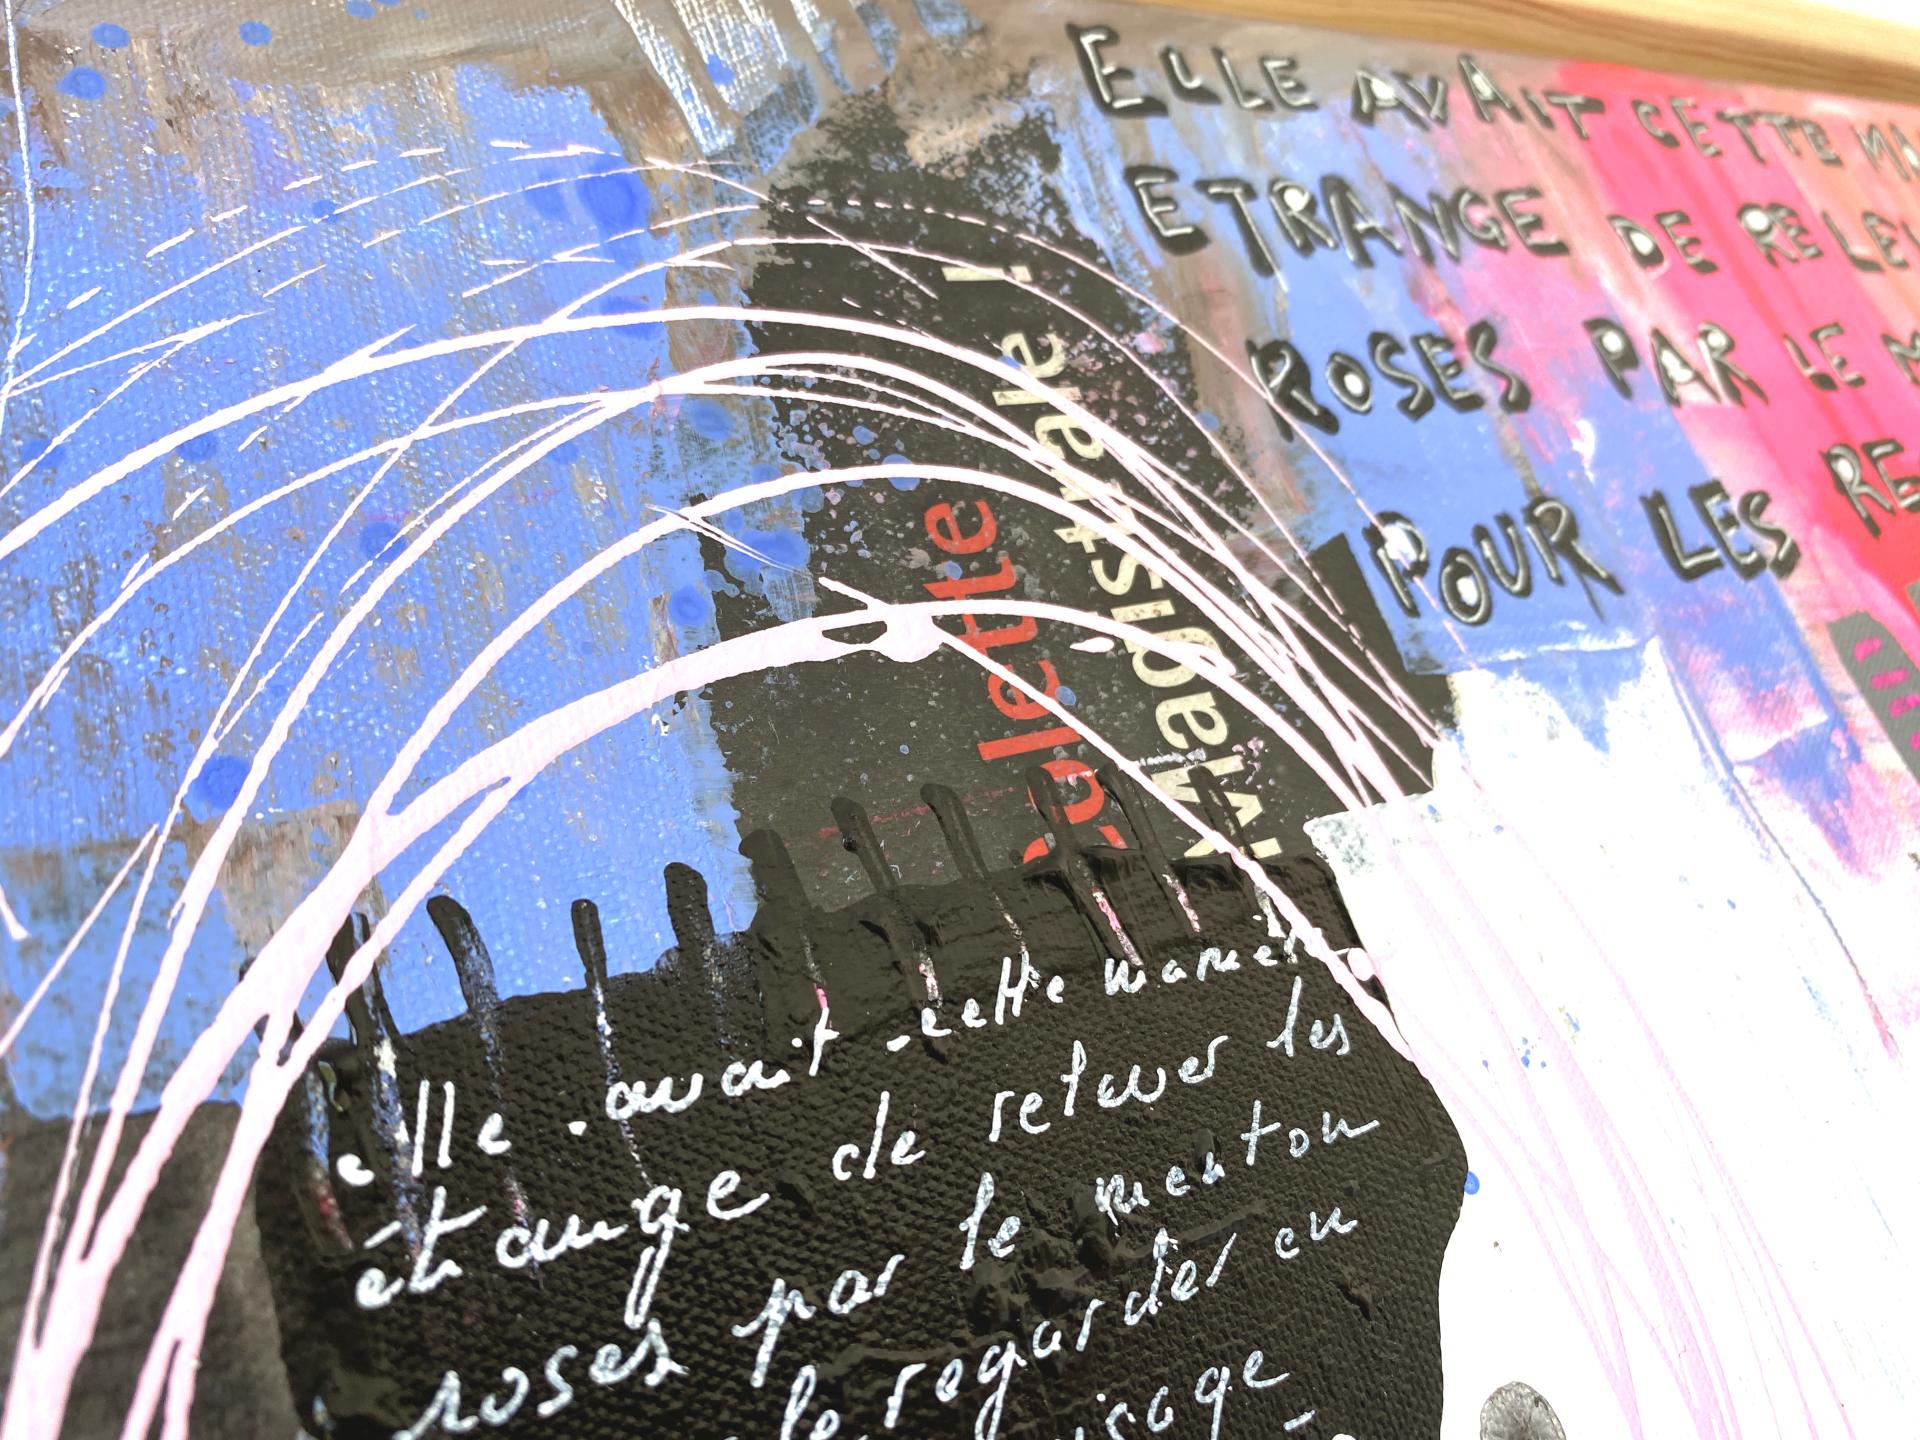 ELLE AVAIT CETTE
ETRANGE DE RELEV
ROSES PAR LE M
POUR LES RE
Colette
Magistrale !
elle avait cette manier
étrange de relever les
roses par le menton
le regarder en
visage